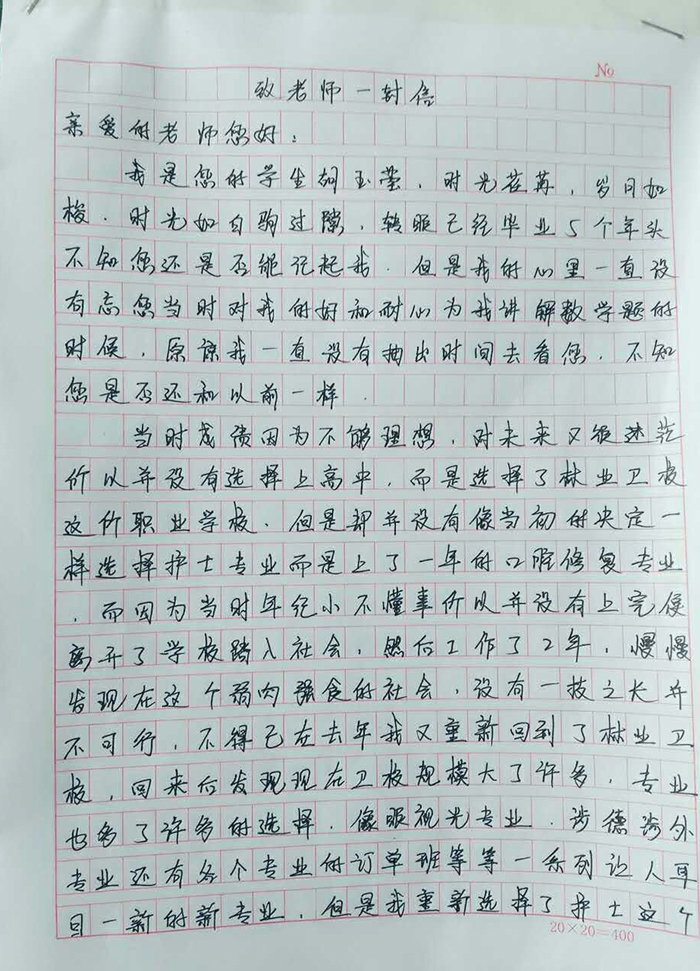 No
致老师一封信
亲爱的老师您好：
我是您的学生胡玉莹，时光荏苒，岁月如
梭．时光如白驹过隙，转眼已经毕业5个年头
不知您还是否能记起我．但是我的心里一直没
有忘您当时对我的好和耐心为我讲解数学题的
时候，原谅我一直没有抽出时间去看您．不知
您是否还和以前一样．
当时成绩因为不够理想，对未来又很迷茫
所以并没有选择上高中，而是选择了林业卫校
这所职业学校．但是却并没有像当初的决定一
样选择护士专业而是上了一年的口腔修复专业
．而因为当时年纪小不懂事所以并没有上完便
离开了学校踏入社会，然后工作了2年，慢慢
发现在这个弱肉强食的社会，没有一技之长并
不可行，不得已在去年我又重新回到了林业卫
校，回来后发现现在卫校规模大了许多，专业
也多了许多的选择．像眼视光专业．涉德涉外
专业还有各个专业的订单班等等一系列让人耳
目一新的新专业．但是我重新选择了护士这个
20×20=400